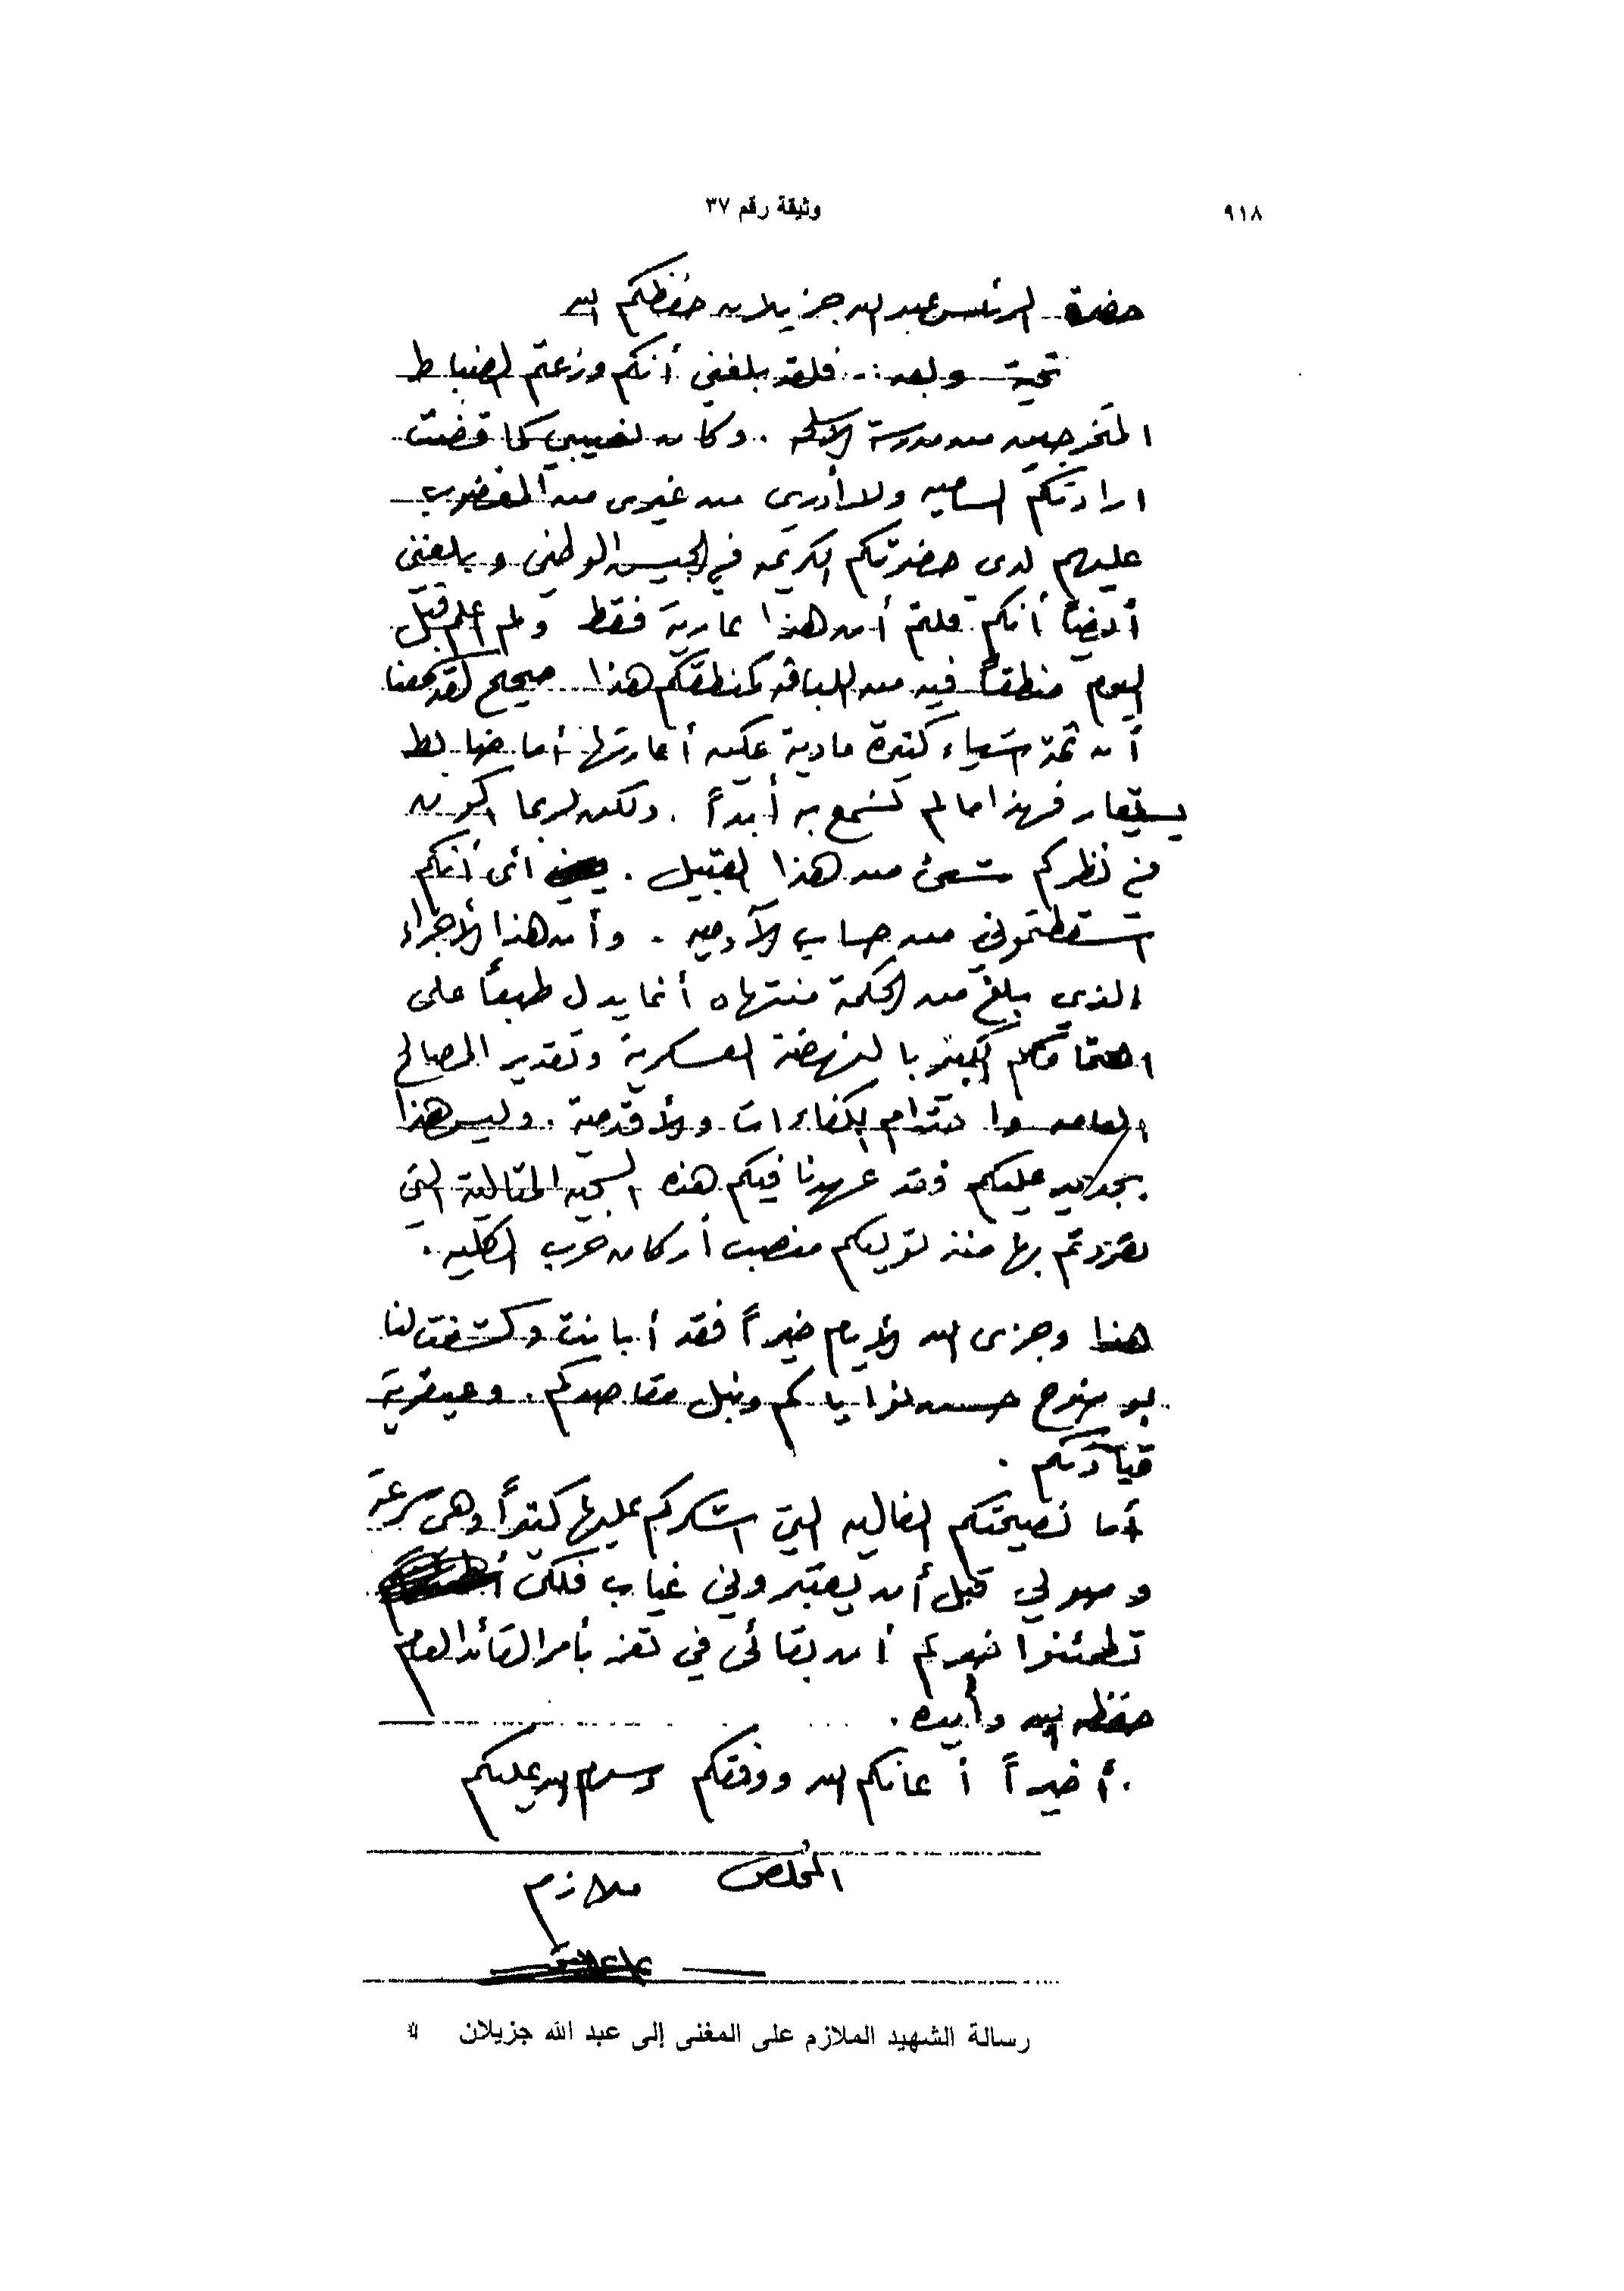 ٩١٨
وثيقة رقم ٣٧
حضرة الرئيس عبد الله جزيلان حفظكم الله
تحية وبعد :- فلقد بلغني أنكم وزعتم الضباط
المتخرجين من مدرسة الاسلحة . وكان نصيبي كما قضت
ارادتكم الساميه ولا أدري من غيري من المغضوب
عليهم لدى حضرتكم الكريمه في الجيش الوطني وبلغني
أيضاً أنكم قلتم أن هذا عارية فقط ولم اعلم قبل
اليوم منطقاً فيه من اللباقه كمنطقكم هذا صحيح لقد سمعنا
أن ثمة اشياء كثيرة مادية يمكن أعارتها أما ضابط
يستعار فهذا مالم نسمع به أبداً . ولكن لربما اكون
في نظركم شئ من هذا القبيل . اى أنكم
اسقطتموني من حساب الآدميه . وأن هذا الأجراء
الذي بلغ من الحكمة منتهاه أنما يدل طبعاً على
اهتمامكم الكبير بالنهضة العسكرية وتقدير المصالح
العامه واحترام الكفاءات والأقدمية . وليس هذا
بجديد عليكم فقد عهدنا فيكم هذه السجيه المثالية التي
تفردتم بها منذ توليكم منصب أركان حرب الكليه .
هذا وجزى الله الأيام خيراً فقد أبانت وكشفت لنا
بوضوح حسن نواياكم ونبل مقاصدكم . وعبقرية
قيادتكم .
أما نصيحتكم الغاليه التي اشكركم عليها كثيراً وهي سرعة
وصولي قبل أن يعتبروني غياب فلكي
تطمئنوا أن بقائى في تعز بأمر القائد العام
حفظه الله وأيده .
أخيراً أعانكم الله ووفقكم وسلام الله عليكم
المخلص ملازم
رسالة الشهيد الملازم على المغنى إلى عبد الله جزيلان